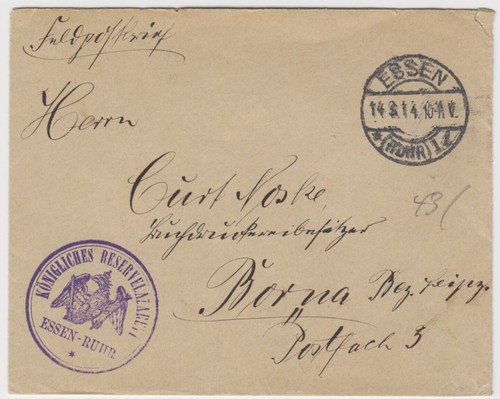 Feldpostbrief
ESSEN
14.8.14.10-11V.
* (RUHR) 1 z
Herrn
Curt Noske,
Buchdruckereibesitzer
43/
KÖNIGLICHES RESERVELAZARETT
ESSEN-RUHR
*
Borna Bez. Leipzg.
Postfach 3